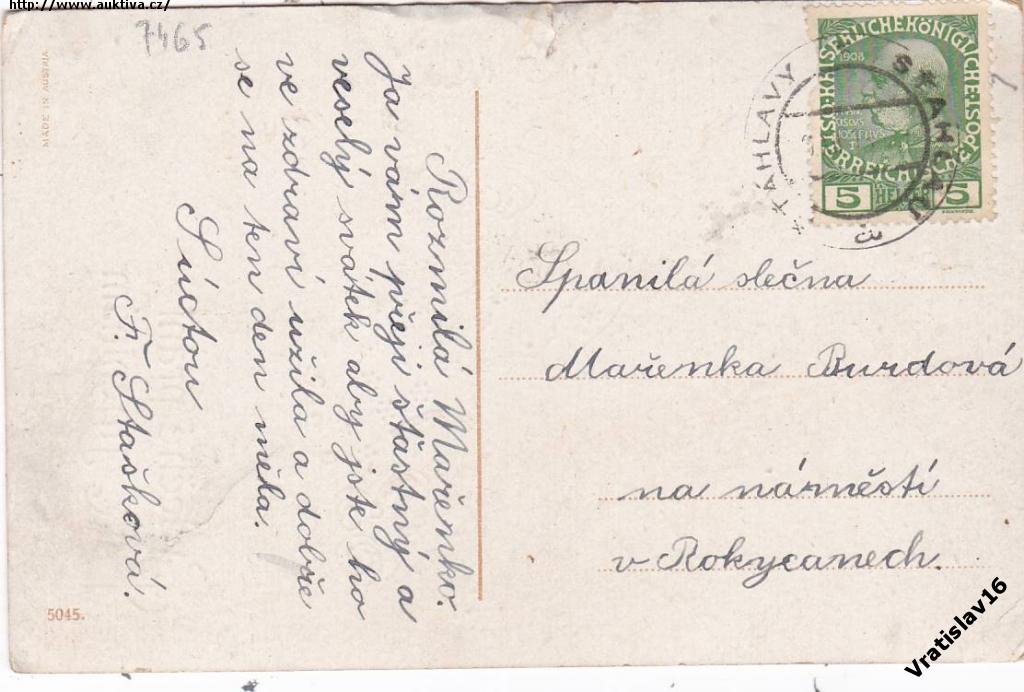 http://www.auktiva.cz/
7465
MADE IN AUSTRIA
Rozmilá Mařenko.
Ja vám přeji šťastný a
veselý svátek aby jste ho
ve zdraví užila a dobře
se na ten den měla.
S úctou
F. Stašková.
5045.
KAISERLICHE KÖNIGLICHE POST
1908
ÖSTERREICHISCHE
5 5
ŠŤÁHLAVY
3
Spanilá slečna
Mařenka Burdová
na náměstí
v Rokycanech.
Vratislav16